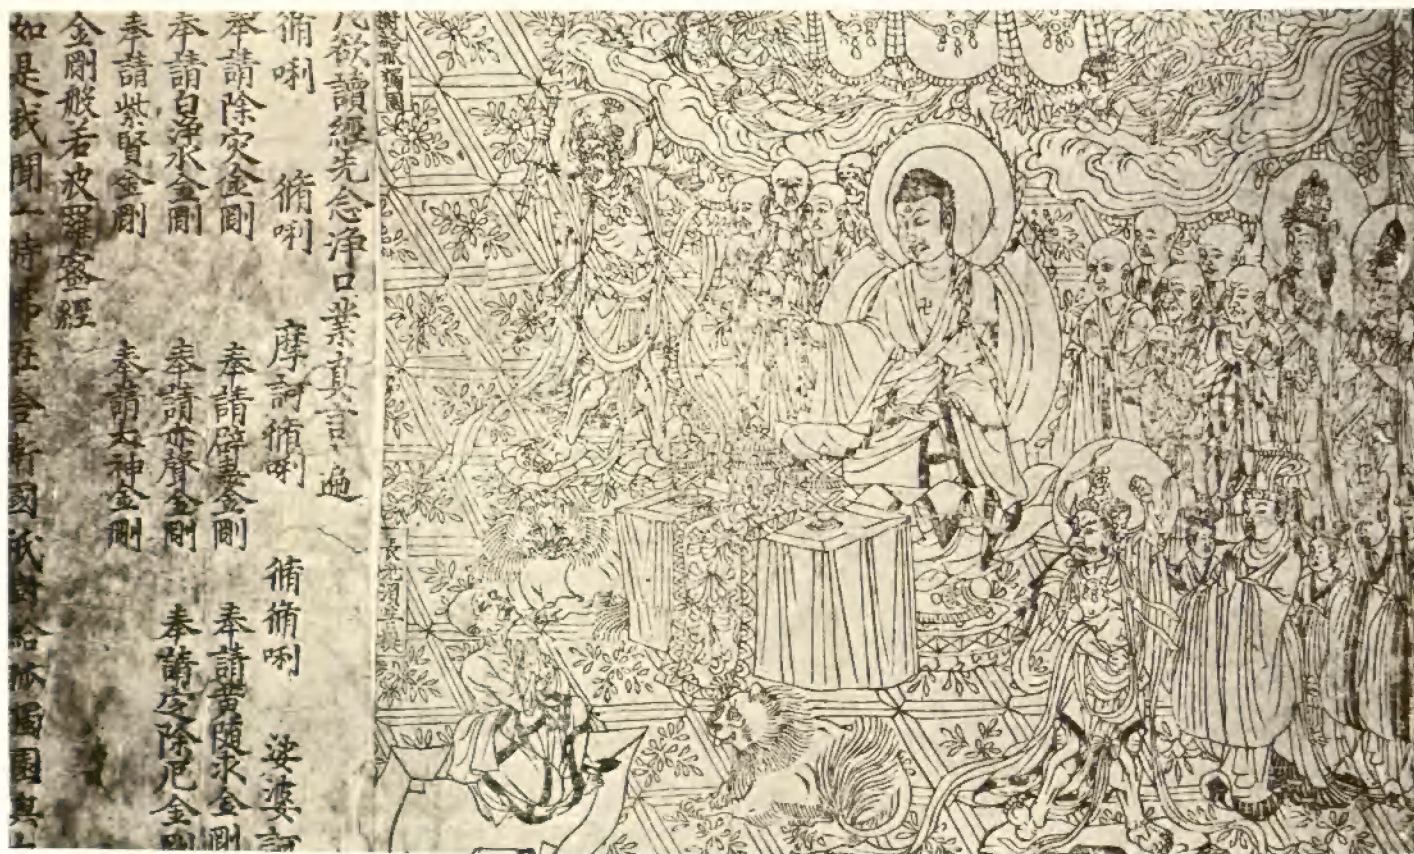 祇樹給孤獨園
長老須菩提
凡欲讀經先念淨口業真言遍
脩唎 脩唎 摩訶脩唎 脩脩唎 娑婆訶
奉請除灾金剛 奉請辟毒金剛 奉請黃隨求金剛
奉請白淨水金剛 奉請赤聲金剛 奉請定除厄金剛
奉請紫賢金剛 奉請大神金剛
金剛般若波羅蜜經
如是我聞一時佛在舍衛國祇樹給孤獨園與